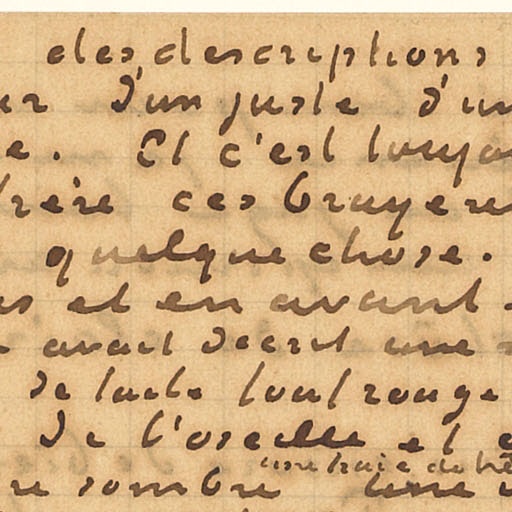 des descriptions
d'un juste d'un
e. Et c'est toujou
frère ces bruyere
quelque chose.
et en avant
avait décrit une
de tout rouge
de l'oseille et
une haie de
re sombre une